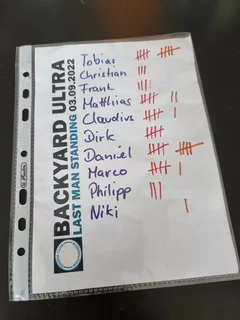 BACKYARD ULTRA
LAST MAN STANDING 03.09.2022
Tobias
Christian
Frank
Matthias
Claudius
Dirk
Daniel
Marco
Philipp
Niki